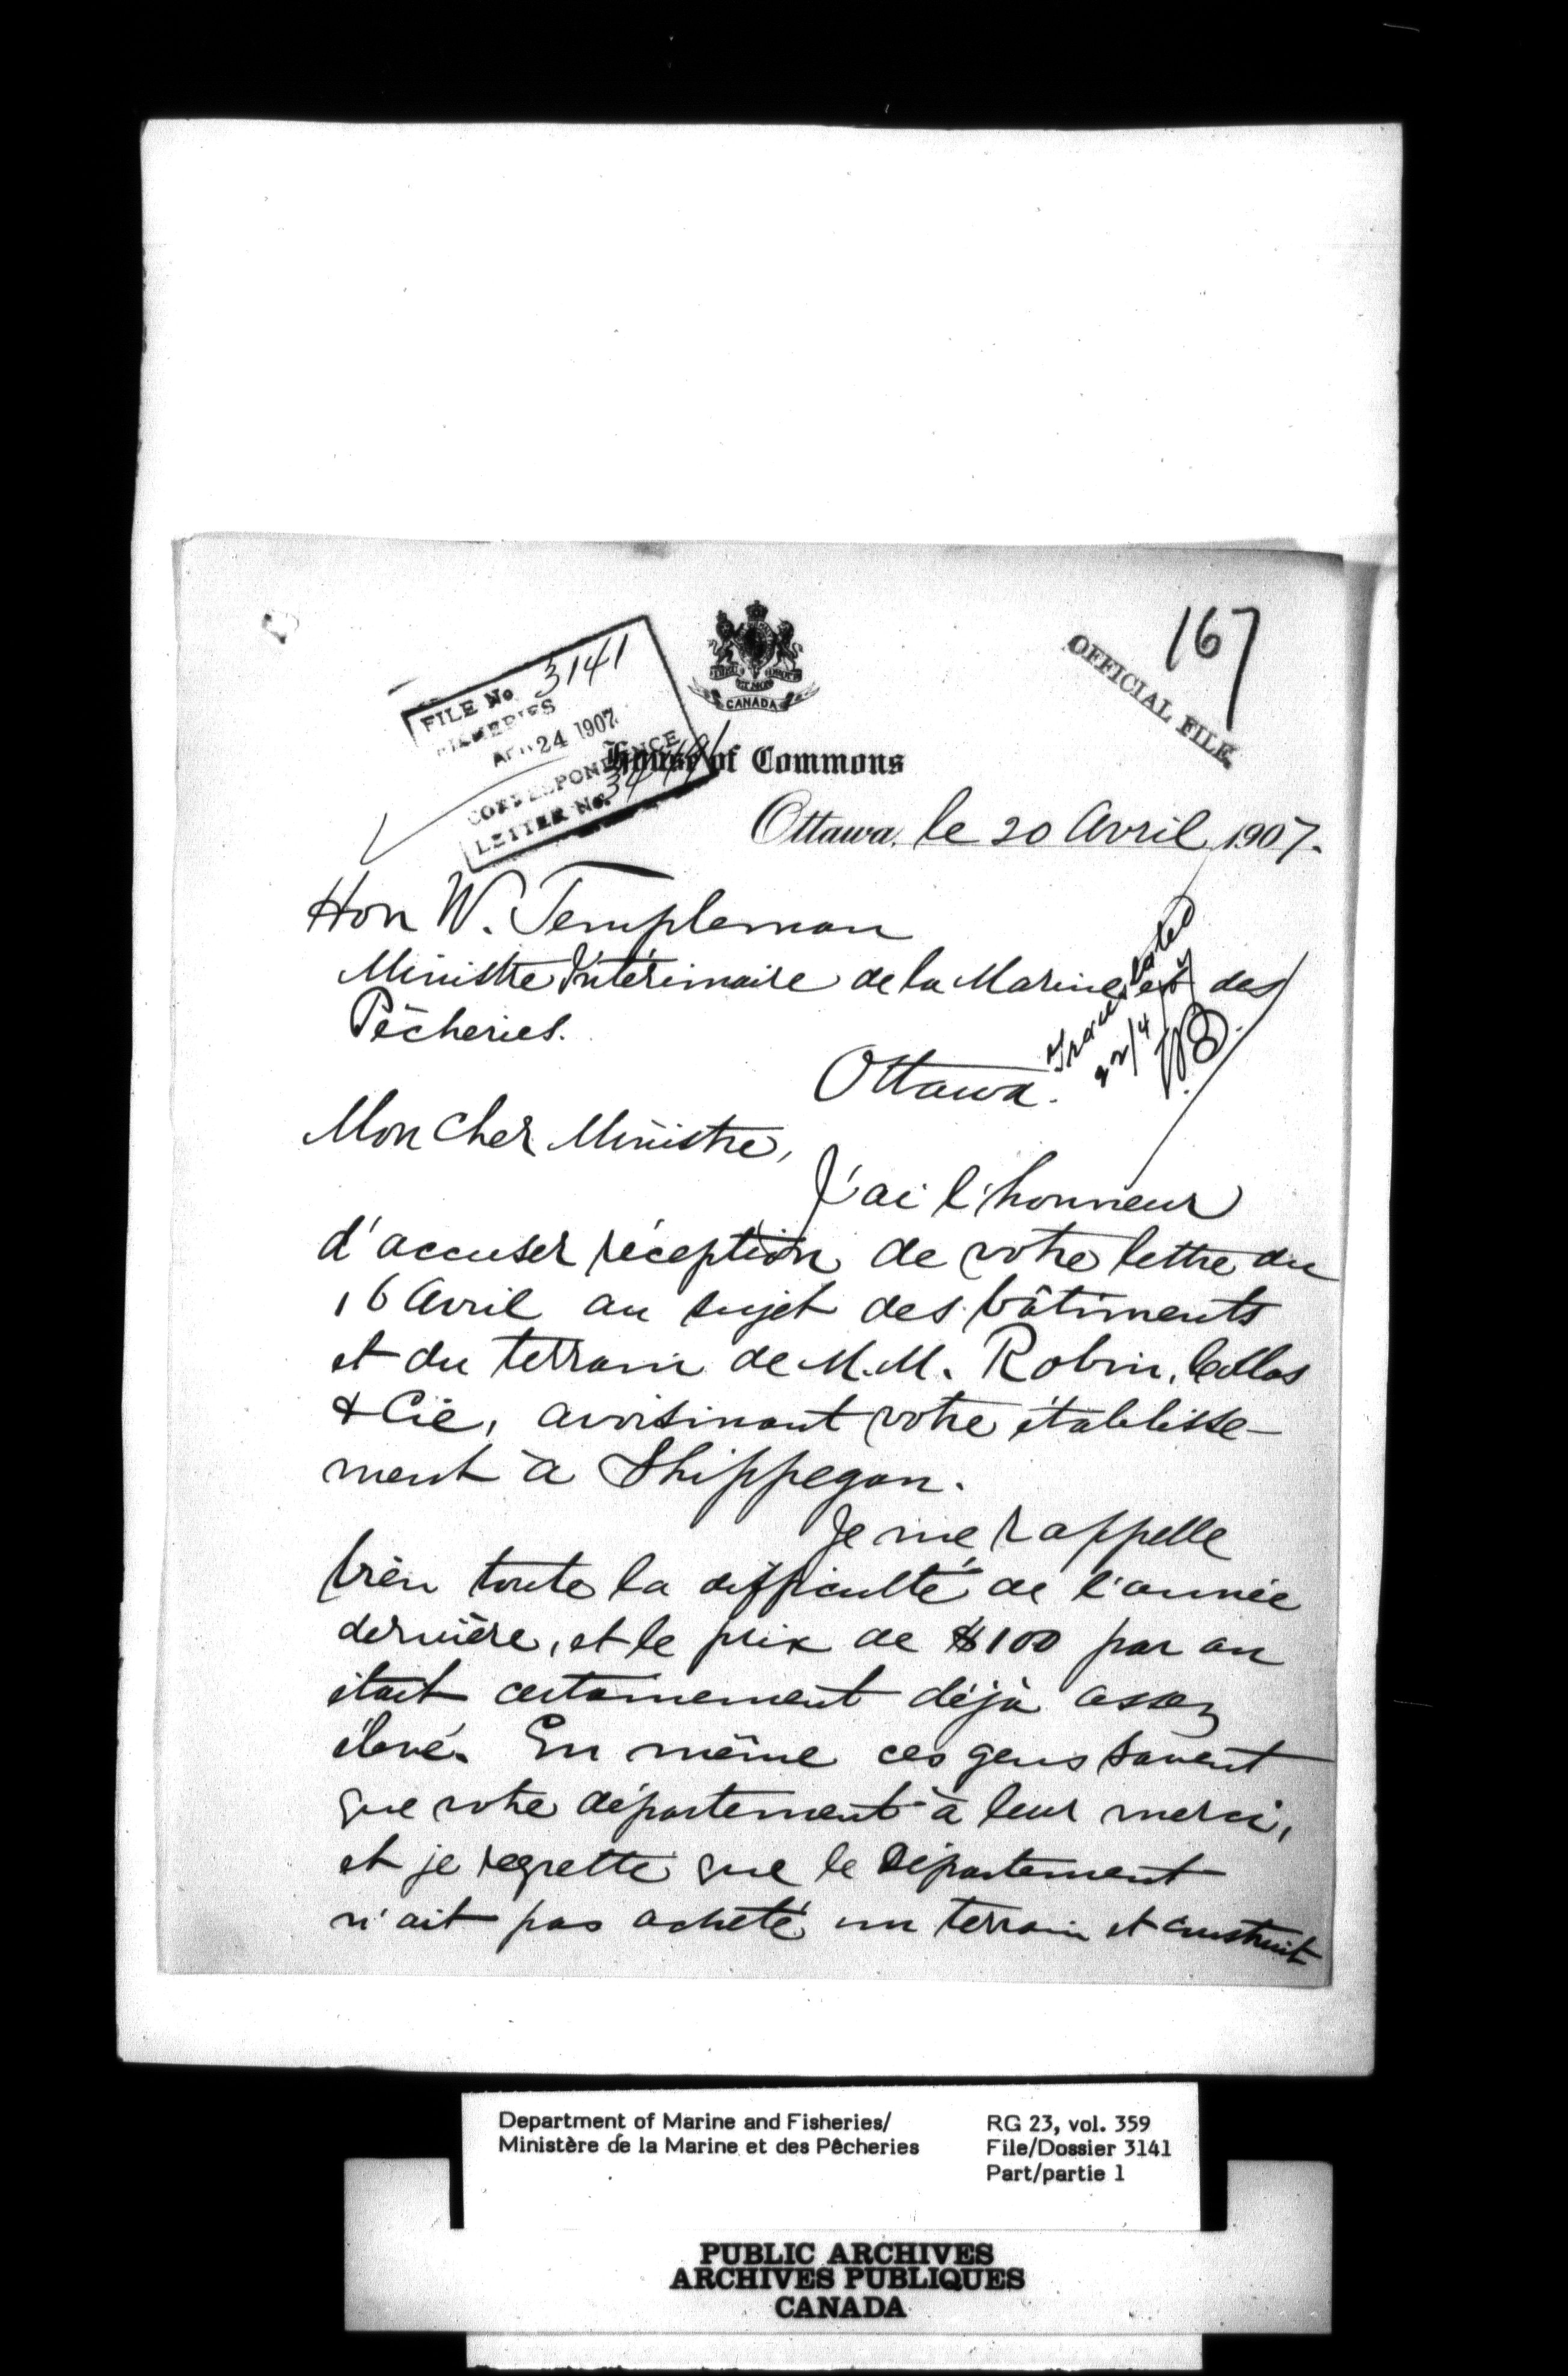 167
OFFICIAL FILE
FILE No. 3141
FISHERIES
APR 24 1907
CORRESPONDENCE
LETTER No.
CANADA
House of Commons
Ottawa, le 20 Avril 1907.
Hon W. Templeman
Ministre Intérimaire de la Marine et des
Pêcheries.
Ottawa.
Translated
22/4/
Mon Cher Ministre,
J'ai l'honneur
d'accuser réception de votre lettre du
16 Avril au sujet des bâtiments
et du terrain de M.M. Robin, Collas
& Cie, avoisinant votre établisse-
ment à Shippegan.
Je me rappelle
bien toute la difficulté de l'année
dernière, et le prix de $100 par an
était certainement déjà assez
élevé. En même ces gens savent
que votre département à leur merci,
et je regrette que le Département
n'ait pas acheté un terrain et construit
Department of Marine and Fisheries/
Ministère de la Marine et des Pêcheries
RG 23, vol. 359
File/Dossier 3141
Part/partie 1
PUBLIC ARCHIVES
ARCHIVES PUBLIQUES
CANADA